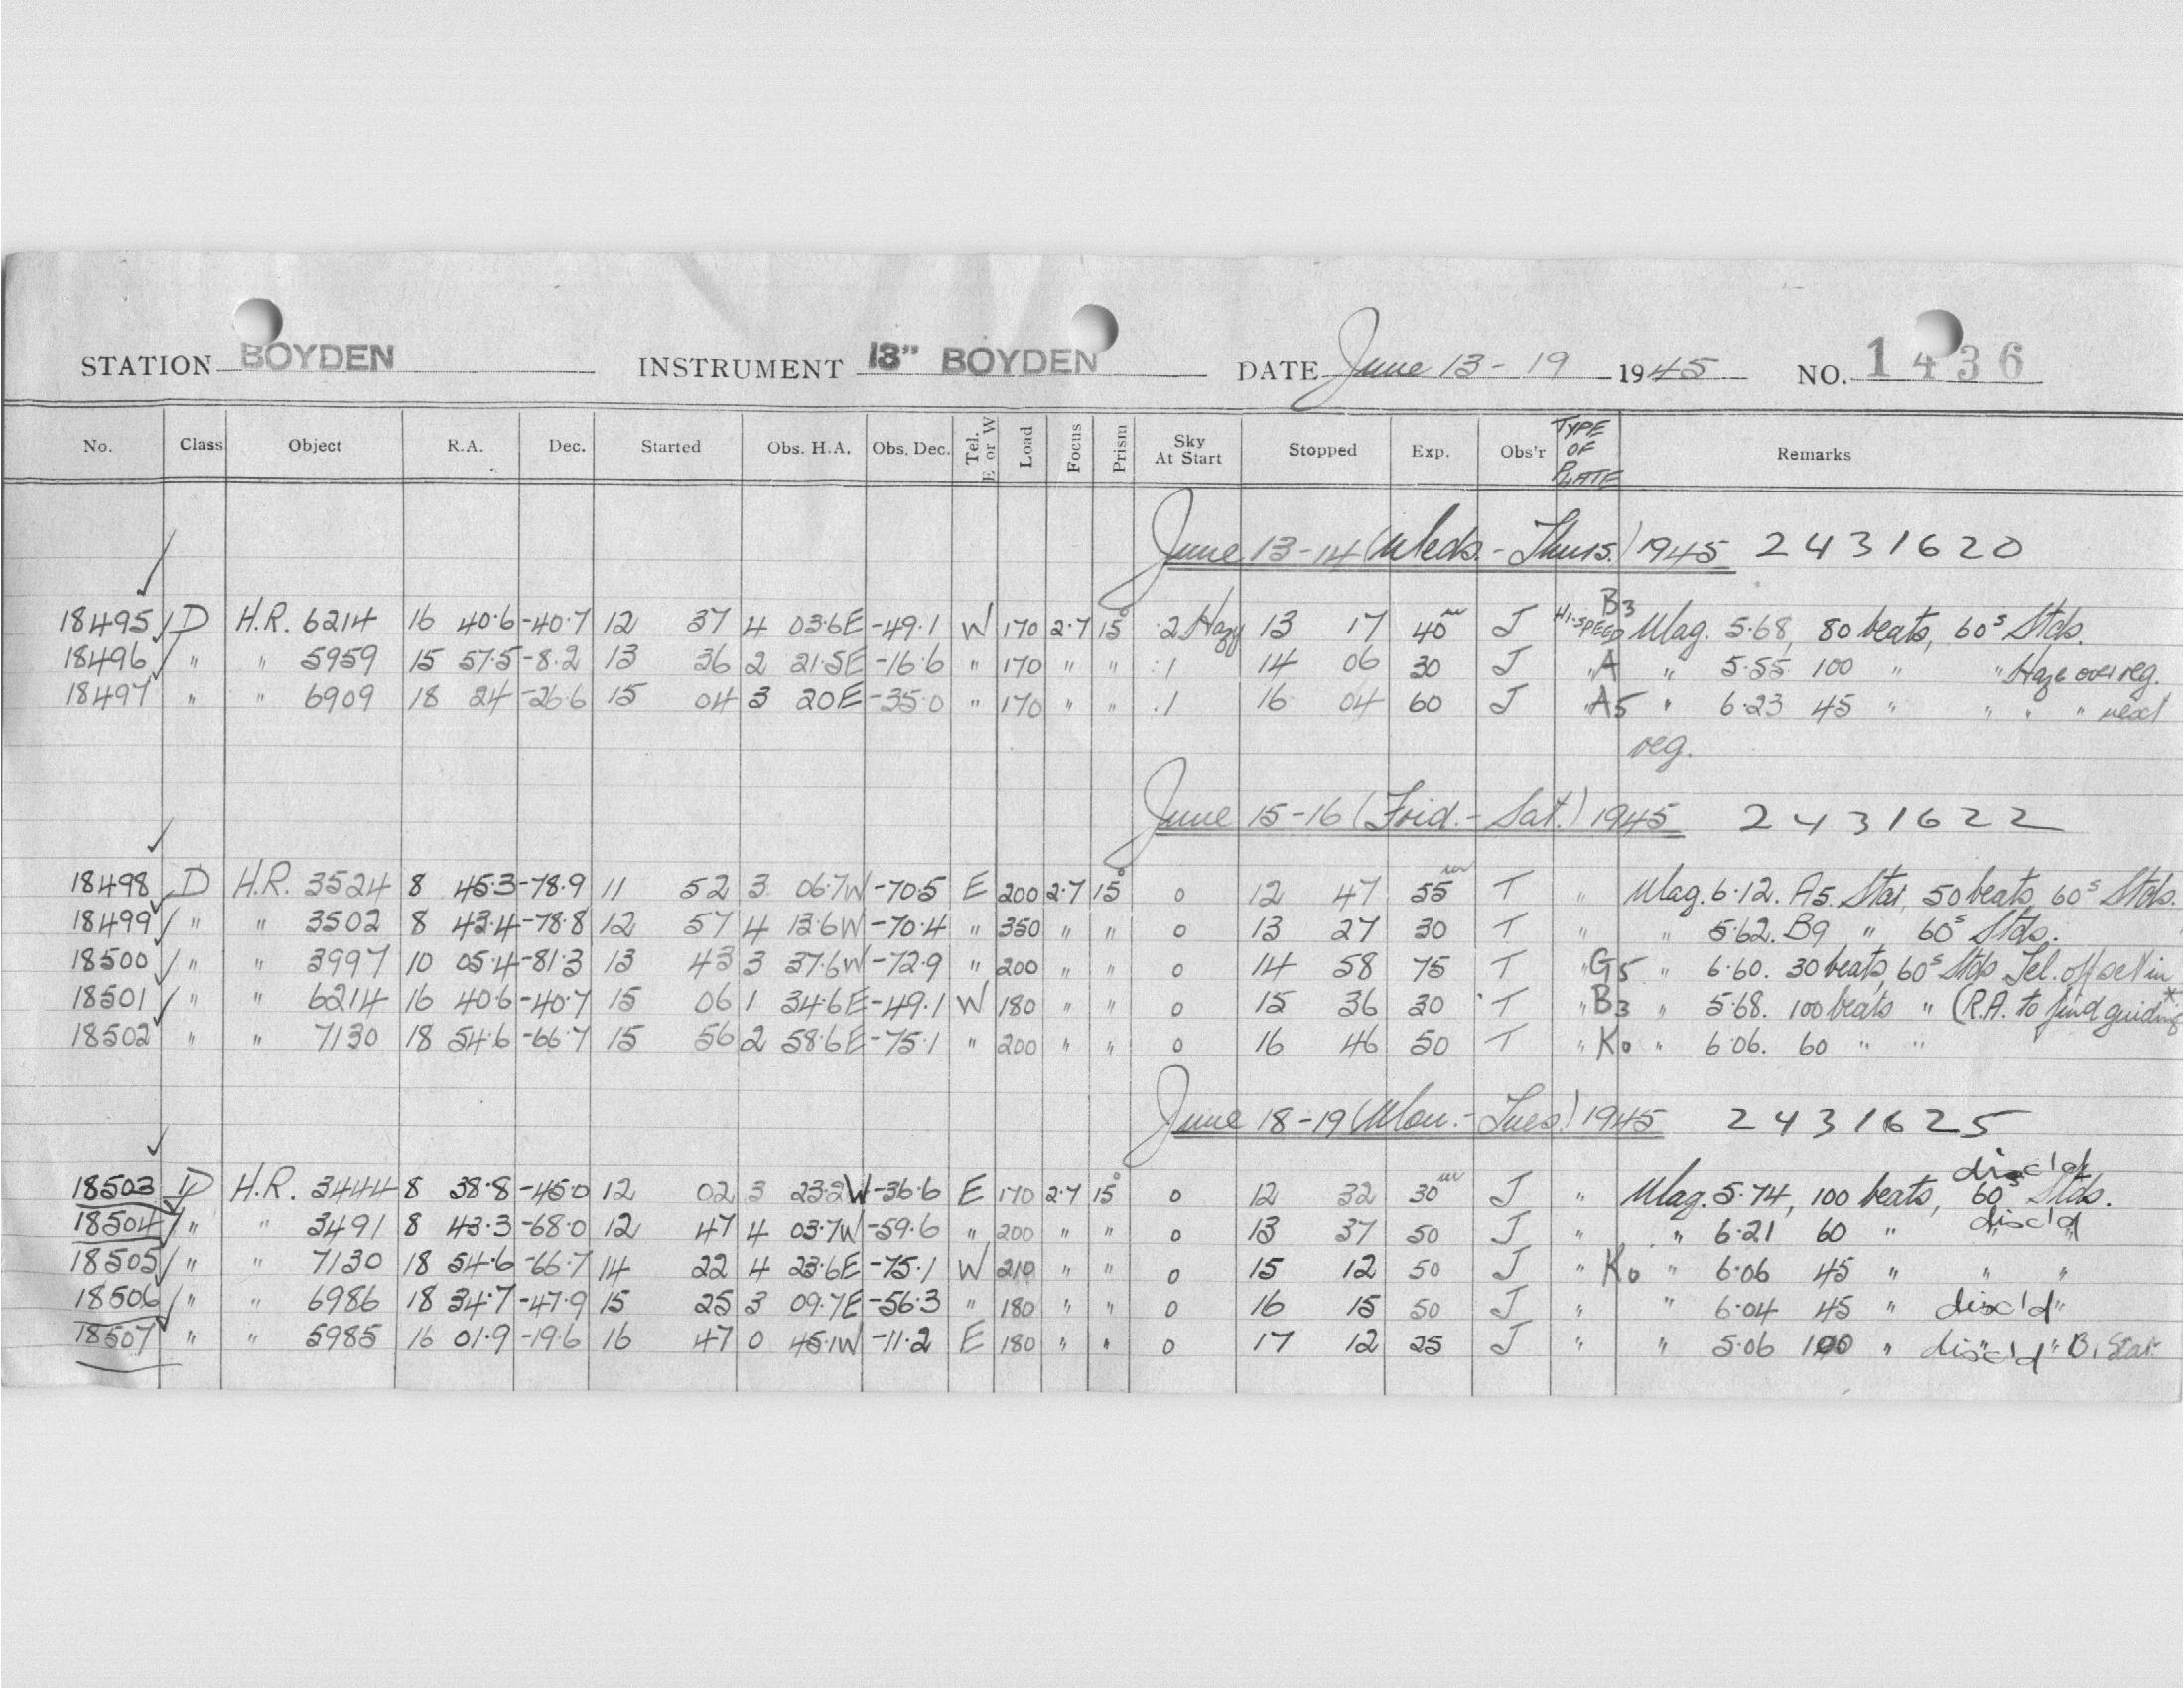 STATION BOYDEN INSTRUMENT 18" BOYDEN DATE June 13-19 1945 NO. 1436
No. Class Object R.A. Dec. Started Obs. H.A. Obs. Dec. Tel. E or W Load Focus Prism Sky At Start Stopped Exp. Obs'r TYPE OF PLATE Remarks
June 13-14 (Weds.-Thurs.) 1945 2431620
18495 D H.R. 6214 16 40.6 -40.7 12 37 4 03.6E -49.1 W 170 2.7 15° .2 Hazy 13 17 40m J HI-SPEED B3 Mag. 5.68, 80 beats, 60s Stds.
18496 " " 5959 15 57.5 -8.2 13 36 2 21.5E -16.6 " 170 " " .1 14 06 30 J " A " 5.55 100 " " Haze over reg.
18497 " " 6909 18 24 -26.6 15 04 3 20E -35.0 " 170 " " .1 16 04 60 J " A5 " 6.23 45 " " " " next
reg.
June 15-16 (Frid.-Sat.) 1945 2431622
18498 D H.R. 3524 8 45.3 -78.9 11 52 3 06.7W -70.5 E 200 2.7 15° 0 12 47 55m T " Mag. 6.12. A5. Star, 50 beats, 60s Stds.
18499 " " 3502 8 43.4 -78.8 12 57 4 13.6W -70.4 " 350 " " 0 13 27 30 T " " 5.62. B9 " 60s Stds.
18500 " " 3997 10 05.4 -81.3 13 43 3 37.6W -72.9 " 200 " " 0 14 58 75 T " G5 " 6.60. 30 beats, 60s Stds Tel. offset in
18501 " " 6214 16 40.6 -40.7 15 06 1 34.6E -49.1 W 180 " " 0 15 36 30 T " B3 " 5.68. 100 beats " (R.A. to find guiding *
18502 " " 7130 18 54.6 -66.7 15 56 2 58.6E -75.1 " 200 " " 0 16 46 50 T " K0 " 6.06. 60 " "
June 18-19 (Mon.-Tues.) 1945 2431625
disc'd
18503 D H.R. 3444 8 38.8 -45.0 12 02 3 23.2W -36.6 E 170 2.7 15° 0 12 32 30m J " Mag. 5.74, 100 beats, 60s Stds.
18504 " " 3491 8 43.3 -68.0 12 47 4 03.7W -59.6 " 200 " " 0 13 37 50 J " " 6.21 60 " disc'd
18505 " " 7130 18 54.6 -66.7 14 22 4 23.6E -75.1 W 210 " " 0 15 12 50 J " K0 " 6.06 45 " " "
18506 " " 6986 18 34.7 -47.9 15 25 3 09.7E -56.3 " 180 " " 0 16 15 50 J " " 6.04 45 " disc'd "
18507 " " 5985 16 01.9 -19.6 16 47 0 45.1W -11.2 E 180 " " 0 17 12 25 J " " 5.06 100 " disc'd " B, Star